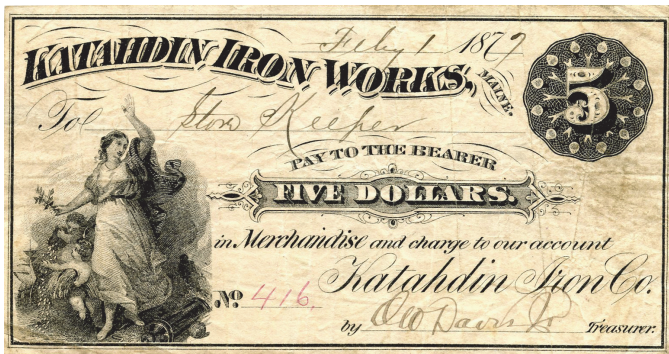 Feby 1 1879
KATAHDIN IRON WORKS, MAINE.
5
To Store Keeper
PAY TO THE BEARER
FIVE DOLLARS.
in Merchandise and charge to our account
Katahdin Iron Co.
No 416
by O W Davis Jr Treasurer.